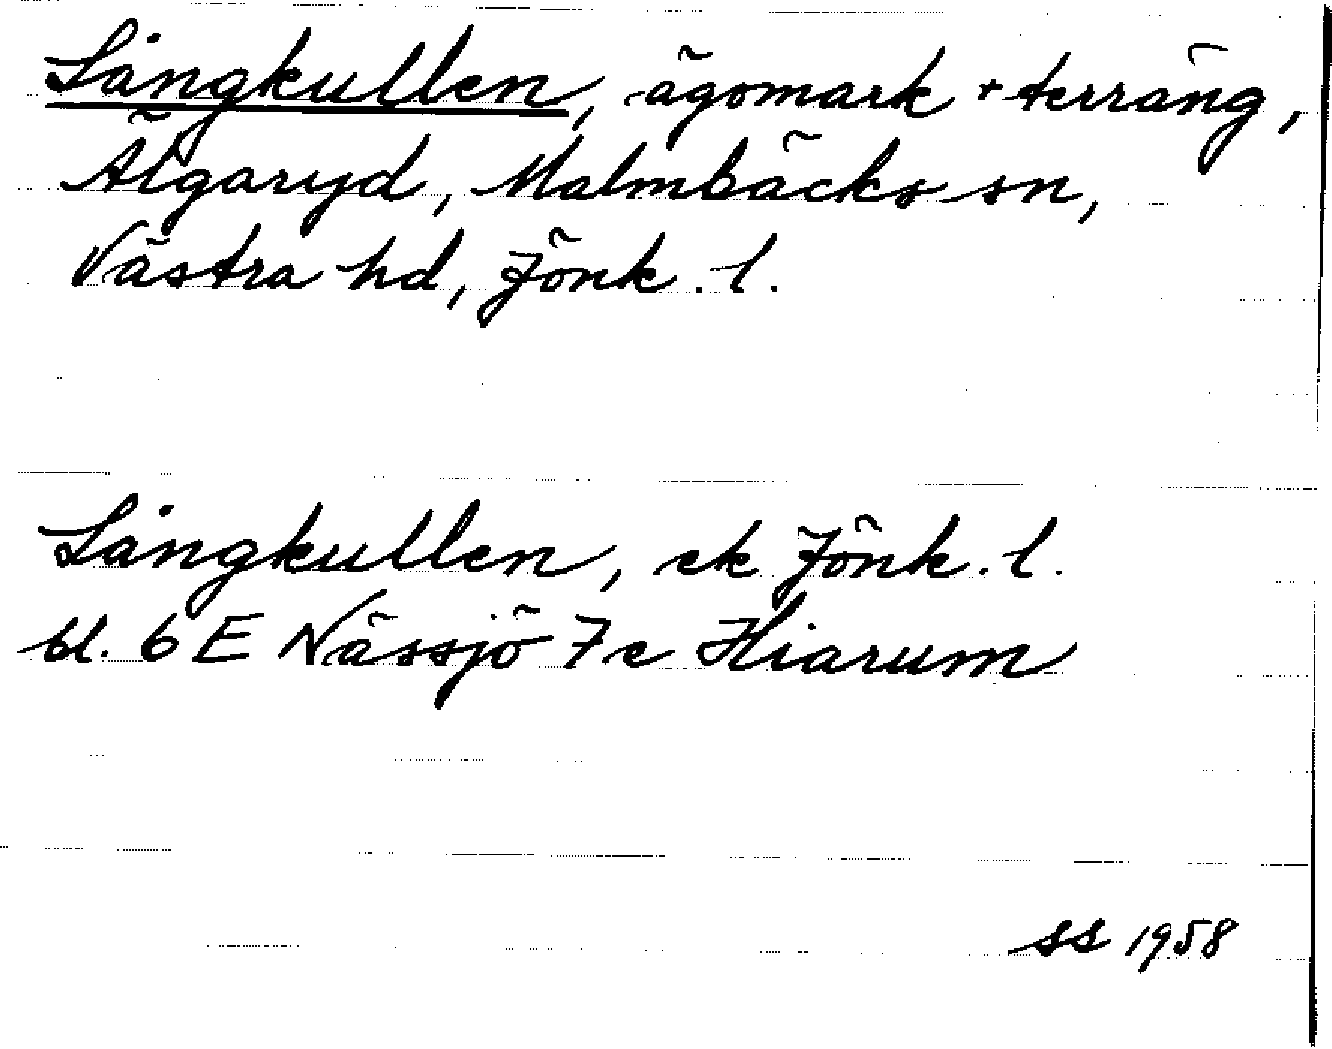 Långkullen, ägomark + terräng,
Älgaryd, Malmbäcks sn,
Västra hd, Jönk. l.
Långkullen, ek Jönk. l.
bl. 6 E Nässjö 7 c Hiarum
SS 1958